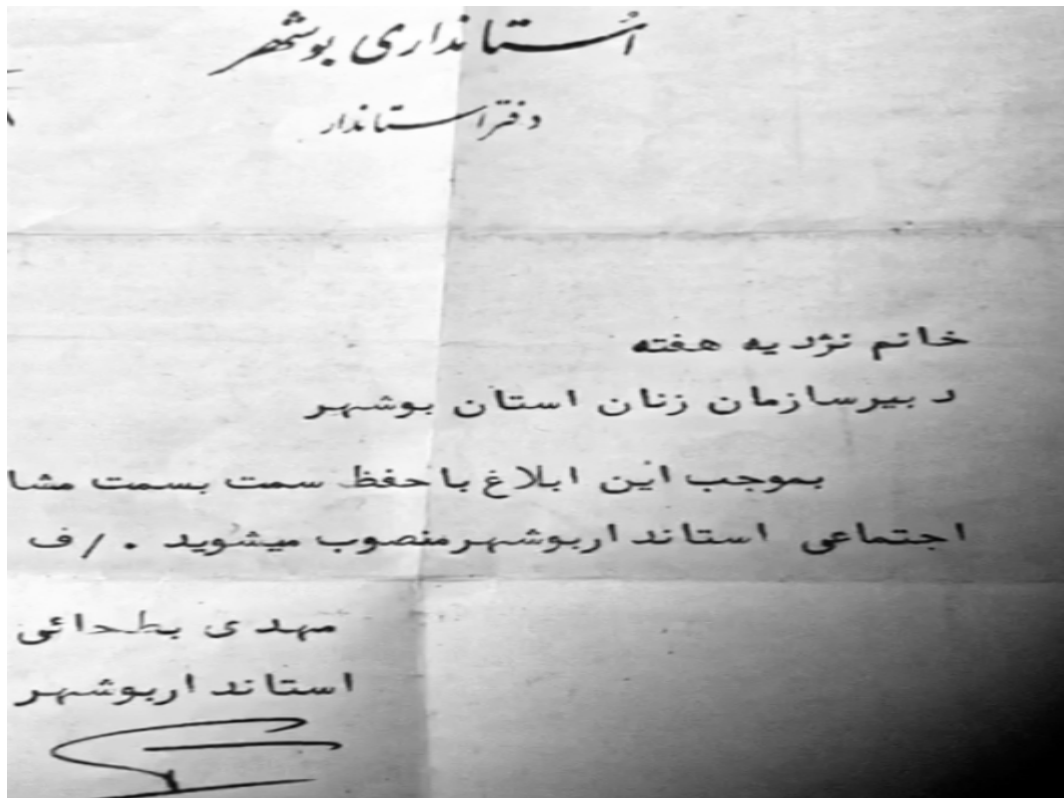 استانداری بوشهر
دفتر استاندار
خانم نژدیه هفته
دبیرسازمان زنان استان بوشهر
بموجب این ابلاغ با حفظ سمت بسمت مشا
اجتماعی استاندار بوشهر منصوب میشوید ./ف
مهدی بطحائی
استاندار بوشهر